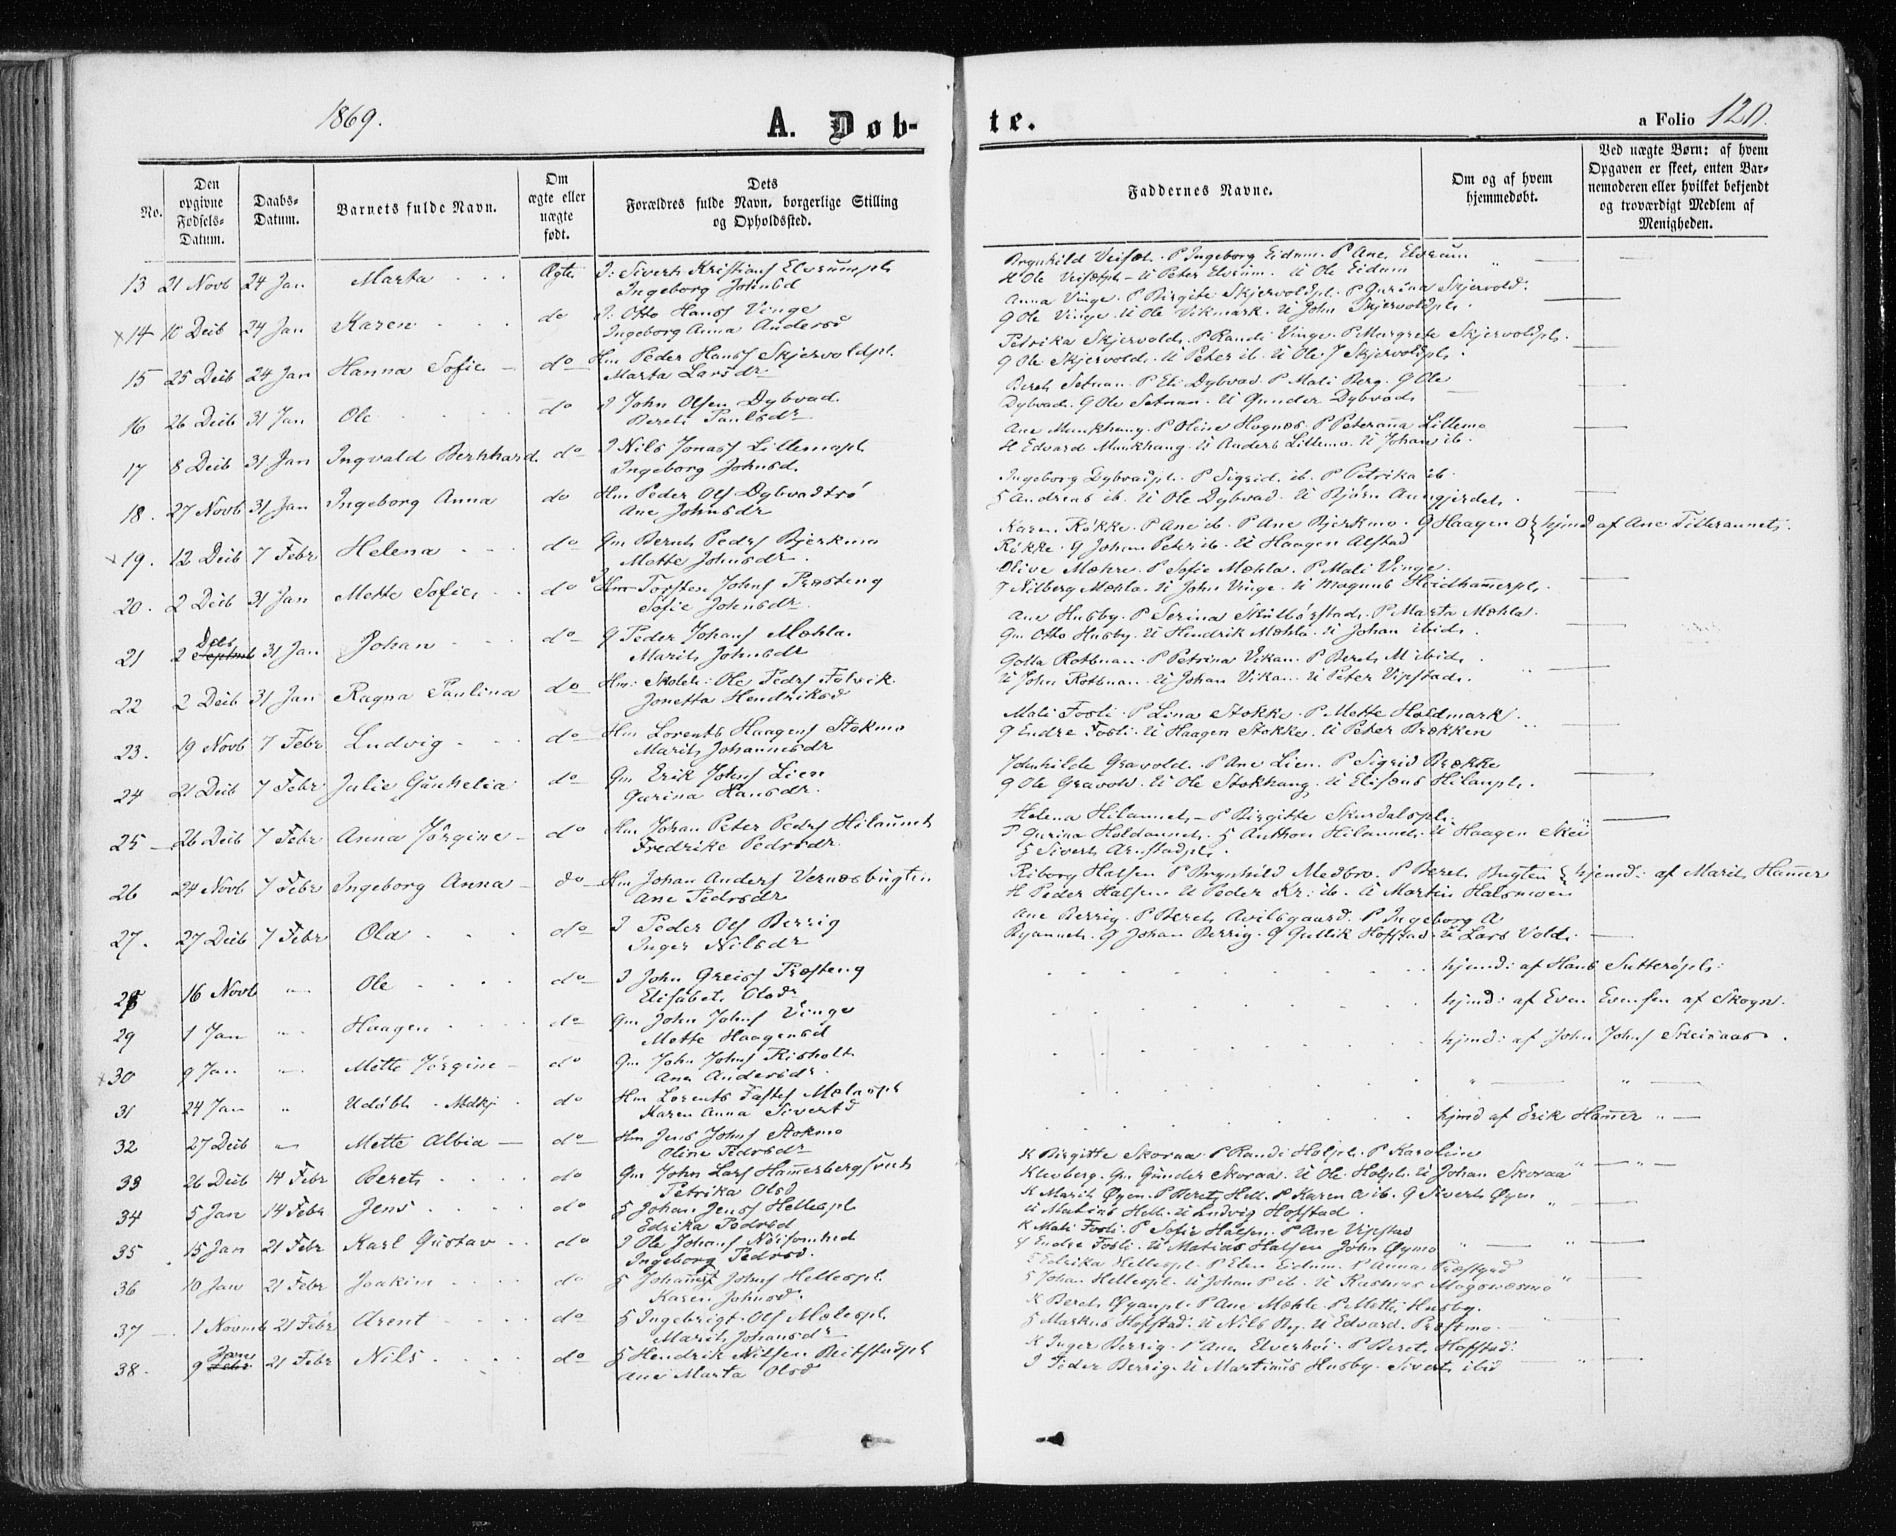 1869.
A. Døb-
te.
a Folio 120.
No.
Den opgivne Fødsels-Datum.
Daabs-Datum.
Barnets fulde Navn.
Om ægte eller uægte født.
Dets Forældres fulde Navn, borgerlige Stilling og Opholdssted.
Faddernes Navne.
Om og af hvem hjemmedøbt.
Ved uægte Børn: af hvem Opgaven er skeet, enten Barnemoderen eller hvilket bekjendt og troværdigt Medlem af Menigheden.
13 21 Novb 24 Jan Marta Ægte I: Sivert Kristians Elvrumpl
Ingeborg Johnsd
Brynhild Veiset P Ingeborg Eidum. P Ane Elvrum
H Ole Veisetpl - U Peter Elvrum. U Ole Eidum
14 10 Decb 24 Jan Karen do I: Otto Hans Vinge
Ingeborg Anna Andersd
Anna Vinge. P Birgite Skjervoldpl. P Gurina Skjervold.
G Ole Vinge. U Ole Vikmark. U John Skjervoldpl.
15 25 Decb 24 Jan Hanna Sofie do Hm Peder Hans Skjervoldpl.
Marta Larsdr
Petrika Skjervold. P Randi Vinge. P Margrete Skjervoldpl.
G Ole Skjervold. U Peter ib. U Ole J Skjervoldpl.
16 26 Decb 31 Jan Ole do I John Olsen Dybvad
Beret Paulsdr
Beret Setnan. P Eli Dybvad. P Mali Berg. G Ole
Dybvad. G Ole Setnan. U Gunder Dybvad
17 8 Decb 31 Jan Ingvald Bernhard do I Nils Jonas Lillemopl
Ingeborg Johnsd.
Ane Munkhaug. P Oline Hognes. P Peteranna Lillemo
H Edvard Munkhaug. U Anders Lillemo. U Johan ib.
18. 27 Novb 31 Jan Ingeborg Anna do Hm Peder Ols Dybvadtrø
Ane Johnsdr
Ingeborg Dybvadpl. P Sigrid ib. P Petrika ib.
S Andreas ib. U Ole Dybvad. U Bjørn Aunjerdet.
19. 12 Decb 7 Febr Helena do Gm Bernt Peds Bjerkmo
Mette Johnsdr.
Karen Røkke. P Ane ib. P Ane Bjerkmo. G Haagen
Røkke. G Johan Peter ib. U Haagen Alstad
hjmd af Ane Tilleraunet.
20. 2 Decb 31 Jan Mette Sofie do Torsten Johns Præsteng
Sofie Johnsdr.
Olive Mæhre. P Sofie Mæhla. P Mali Vinge.
Nilberg Mæhla. U John Vinge. U Magnus Heidhammerpl.
21 2 Decb 31 Jan Johan do G Peder Johans Mæhla.
Marit Johnsdr
Ane Husby. P Serina Skulbørstad. P Marta Mæhla.
Gm Otto Husby. U Hendrik Mæhla. U Johan ibid.
22 2 Decb 31 Jan Ragna Paulina do Hm: Skolel: Ole Peds Folvik
Jonetta Hendriksd
Golla Rotbnan. P Petrina Vikan. P Beret M ibid.
U John Rotbnan. U Johan Vikan. U Peter Vipstad.
23. 19 Novb 7 Febr Ludvig do Hm Lorents Haagens Stokmo
Marit Johannesdr
Mali Fosli. P Lina Stokke. P Mette Holdmark.
G Endre Fosli. U Haagen Stokke. U Peter Brækken
24 21 Decb 7 Febr Julie Gunhelia do Gm Erik Johns Lien
Gurina Hansdr.
Johnhilde Gravold. P Ane Lien. P Sigrid Brække
G Ole Gravold. U Ole Stokhaug. U Eliseus Hilanpl.
25 26 Decb 7 Febr Anna Jørgine do Hm Johan Peter Peds Hilaunet
Fredrike Pedersdr.
Helena Hilaunet - P Birgitte Skurdalspl.
P Gurina Holdaunet. S Anthon Hilaunet. U Haagen Skei
S Sivert Arnstadpl.
26 24 Novb 7 Febr Ingeborg Anna do Hm Johan Anders Vernæsbugten
Ane Pedersdr
Riborg Halsen P Brynhild Medbro. P Beret Bugten
H Peder Halsen U Peder Kr: ib. U Martin Halsmoen
hjemd: af Marit Hammer
27. 27 Decb 7 Febr Ola do I Peder Ols Berrig
Inger Nilsdr
Ane Berrig. P Beret Avilsgaard. P Ingeborg A
Ryaunet. G Johan Berrig. G Gullik Hofstad. U Lars Vold.
28 16 Novb " Ole do I John Greis Præsteng
Elisabet Olsdr
hjemd: af Hans Sutterøpl:
29 1 Jan " Haagen do Gm John Johns Vinge
Mette Haagensd
hjmd: af Even Evensen af Skogn.
30 9 Jan " Mette Jørgine do Gm John Johns Risholt
Ane Andersdr.
hjmd: af John Johns Skeisaas.
31 24 Jan " Udøbt. Mdkj. do Hm Lorents Fastes Mælaspl
Karen Anna Sivertd
32 27 Decb " Mette Albia do Hm Jens Johns Stokmo
Oline Pedersdr
hjmd af Erik Hammer
33 26 Decb 14 Febr Beret do Gm John Lars Hammerbergsvet
Petrika Olsd
K Birgitte Skoraa P Randi Holpl. P Karoline
Klevberg. Gm Gunder Skoraa. U Ole Holpl. U Johan Skoraa
34 5 Jan 14 Febr Jens do S Johan Jens Hellespl
Edrika Pedersd
K Marit Øyen. P Beret Hell. P Karen A ib. G Sivert Øyen
U Matias Hell. U Ludvig Hofstad.
35 15 Jan 21 Febr Karl Gustav do I Ole Johans Nøisomhed
Ingeborg Pedersd.
K Mali Fosli. P Sofie Halsen. P Ane Vipstad
G Endre Fosli. U Matias Halsen John Øymo
36 10 Jan 21 Febr Joakim do S Johannes Johns Hellespl.
Karen Johnsd.
Edrika Hellespl. P Elen Eidum. P Anna Præstgrd
S Johan Hellespl. U Johan P ib. U Rasmus Mogonæsmo
37 1 Novmb 21 Febr Arent do S Ingebrigt Ols Mælespl.
Marit Johansdr
K Beret Øyanpl. P Ane Mæhle. P Mette Husby.
S Markus Hofstad. U Nils By. U Edvard Præstmo.
38. 9 Janr 21 Febr Nils do S Hendrik Nilsen Reitstadpl
Ane Marta Olsd
K Inger Berrig. P Ane Elverhøi. P Beret Hofstad.
I Peder Berrig. U Martinus Husby. Sivert ibid